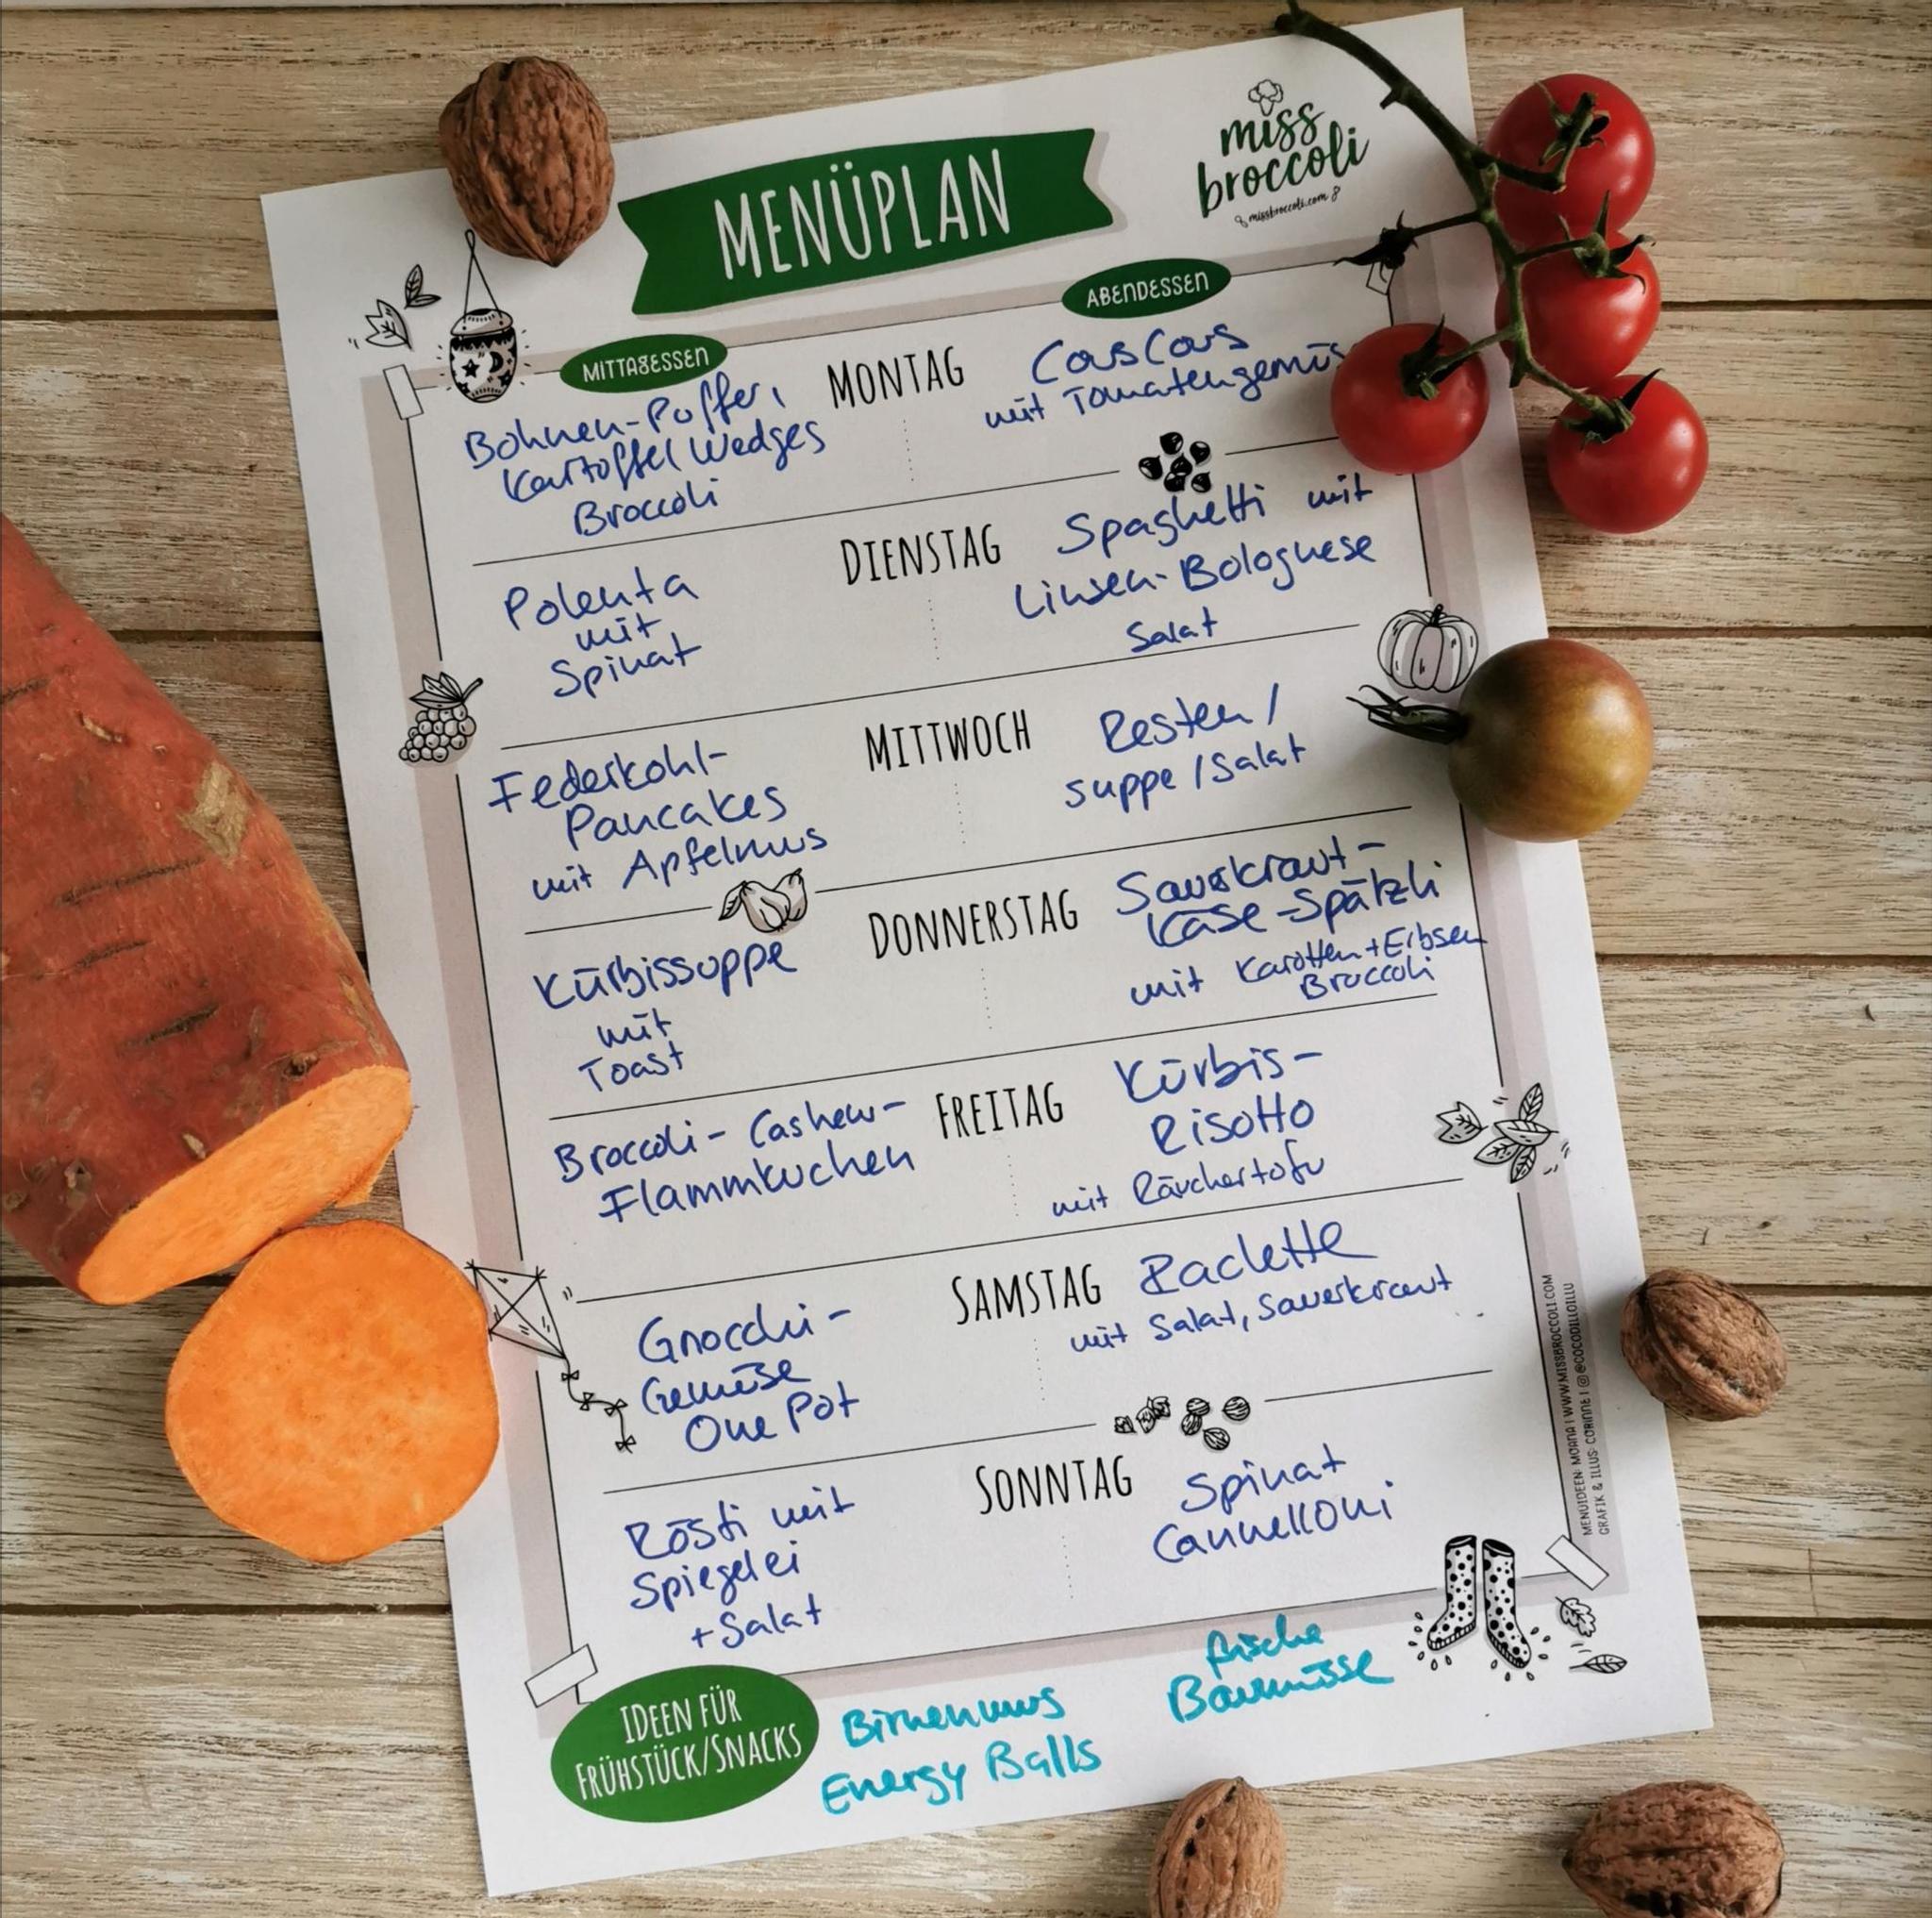 MENÜPLAN
miss
broccoli
missbroccoli.com
MITTAGESSEN
ABENDESSEN
MONTAG
Bohnen-Puffer,
Kartoffel Wedges
Broccoli
CousCous
mit Tomatengemüs
DIENSTAG
Polenta
mit
Spinat
Spaghetti mit
Linsen-Bolognese
Salat
MITTWOCH
Federkohl-
Pancakes
mit Apfelmus
Resten/
suppe/Salat
DONNERSTAG
Kürbissuppe
mit
Toast
Sauerkraut-
Käse-Spätzli
mit Karotten+Erbsen
Broccoli
FREITAG
Broccoli-Cashew-
Flammkuchen
Kürbis-
Risotto
mit Räuchertofu
SAMSTAG
Gnocchi-
Gemüse
One Pot
Raclette
mit Salat, Sauerkraut
SONNTAG
Rösti mit
Spiegelei
+Salat
Spinat
Cannelloni
IDEEN FÜR
FRÜHSTÜCK/SNACKS
Birnenmus
Energy Balls
frische
Baumnüsse
MENÜIDEEN: MOANA | WWW.MISSBROCCOLI.COM
GRAFIK & ILLUS: CORINNE | @COCODILLOILLU